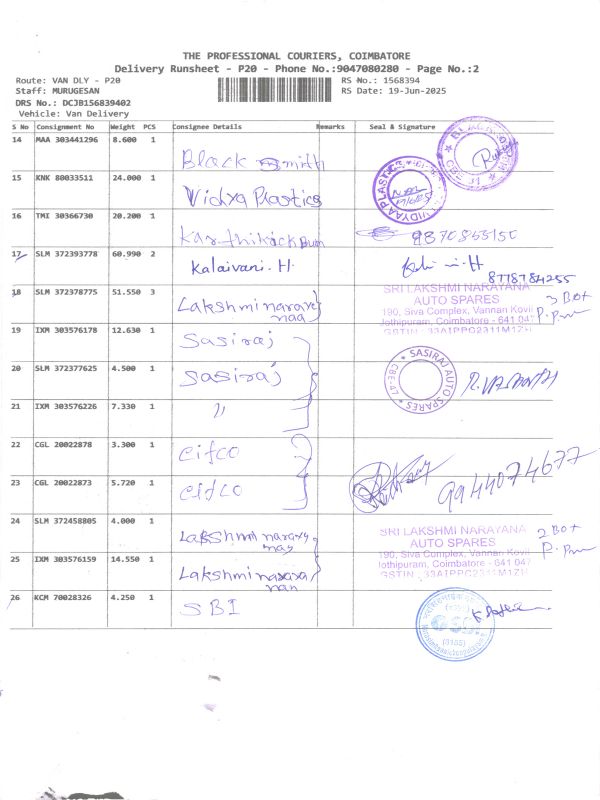 THE PROFESSIONAL COURIERS, COIMBATORE
Delivery Runsheet - P20 - Phone No.:9047080280 - Page No.:2
Route: VAN DLY - P20 RS No.: 1568394
Staff: MURUGESAN RS Date: 19-Jun-2025
DRS No.: DCJB156839402
Vehicle: Van Delivery
S No Consignment No Weight PCS Consignee Details Remarks Seal & Signature
14 MAA 303441296 8.600 1 Black smith
15 KNK 80033511 24.000 1 Vidya Plastics VIDYAA PLASTICS
16 TMI 30366730 20.200 1 Karthikack 9870853150
17 SLM 372393778 60.990 2 Kalaivani.H. 8778784255
18 SLM 372378775 51.550 3 Lakshminaraya
naa
SRI LAKSHMI NARAYANA
AUTO SPARES
190, Siva Complex, Vannan Kovil
Jothipuram, Coimbatore - 641 047
GSTIN : 33A1PPG2311M1ZH
3 Box
19 IXM 303576178 12.630 1 Sasiraj
20 SLM 372377625 4.500 1 Sasiraj SASIRAJ AUTO SPARES CBE-47
21 IXM 303576226 7.330 1 "
22 CGL 20022878 3.300 1 Cifco
23 CGL 20022873 5.720 1 Cifco 9944074677
24 SLM 372458805 4.000 1 Lakshmi naraya
nay
SRI LAKSHMI NARAYANA
AUTO SPARES
190, Siva Complex, Vannan Kovil
Jothipuram, Coimbatore - 641 047
GSTIN : 33A1PPG2311M1ZH
2 Box
25 IXM 303576159 14.550 1 Lakshminaraya
nan
26 KCM 70028326 4.250 1 SBI